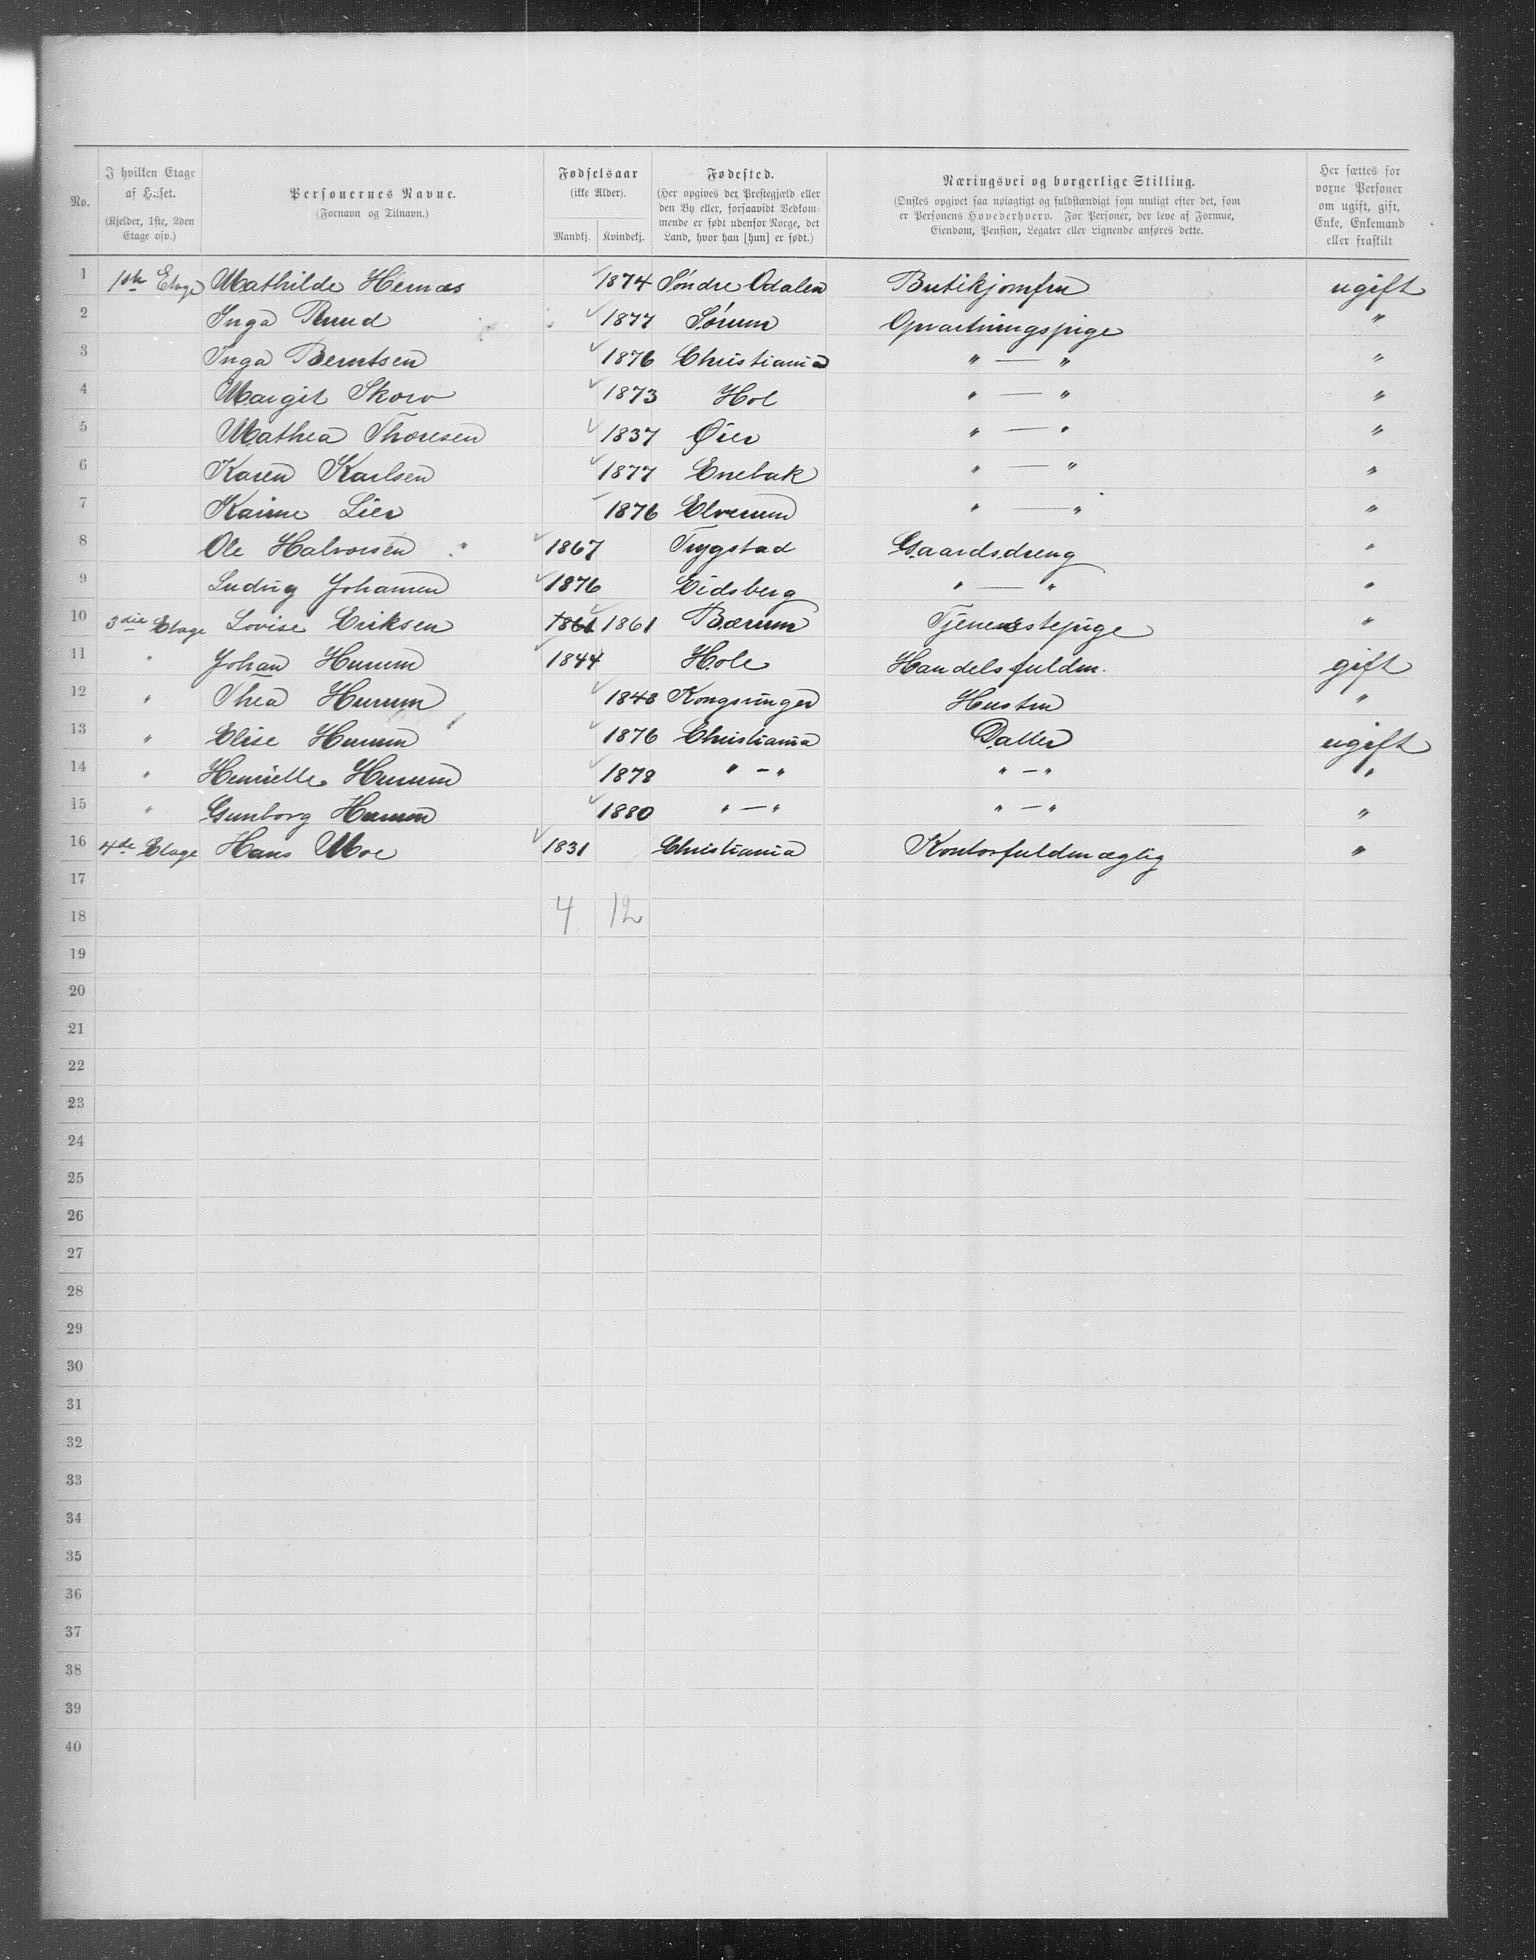 No.
I hvilken Etage af Huset. (Kjelder, 1ste, 2den Etage osv.)
Personernes Navne. (Fornavn og Tilnavn.)
Fødselsaar (ikke Alder). Mandkj. Kvindekj.
Fødested. (Her opgives det Præstegjæld eller den By eller, forsaavidt Vedkommende er født udenfor Norge, det Land, hvor han [hun] er født.)
Næringsvei og borgerlige Stilling. (Ønskes opgivet saa nøiagtigt og fuldstændigt som muligt efter det, som er Personens Hovederhverv. For Personer, der leve af Formue, Eiendom, Pension, Legater eller Lignende anføres dette.
Her sættes for voxne Personer om ugift, gift, Enke, Enkemand eller fraskilt
1 1ste Etage Mathilde Hernæs 1874 Søndre Odalen Butikjomfru ugift
2 Inga Ruud 1877 Sørum Opvartningspige "
3 Inga Berntsen 1876 Christiania " — " "
4 Margit Skoro 1873 Hol " — " "
5 Mathea Thoresen 1837 Øier " — " "
6 Karen Karlsen 1877 Enebak " — " "
7 Karine Lier 1876 Elverum " — " "
8 Ole Halvorsen 1867 Trygstad Gaardsdreng "
9 Ludvig Johansen 1876 Eidsberg " — " "
10 3die Etage Lovise Eriksen 1861 1861 Bærum Tjenestepige "
11 " Johan Hurum 1844 Hole Handelsfuldm. gift
12 " Thea Hurum 1848 Kongsvinger Hustru "
13 " Elise Hurum 1876 Christiania Datter ugift
14 " Henriette Hurum 1878 " — " " — " "
15 " Gunborg Hurum 1880 " — " " — " "
16 4de Etage Hans Moe 1831 Christiania Kontorfuldmægtig "
17
18 4 12
19
20
21
22
23
24
25
26
27
28
29
30
31
32
33
34
35
36
37
38
39
40